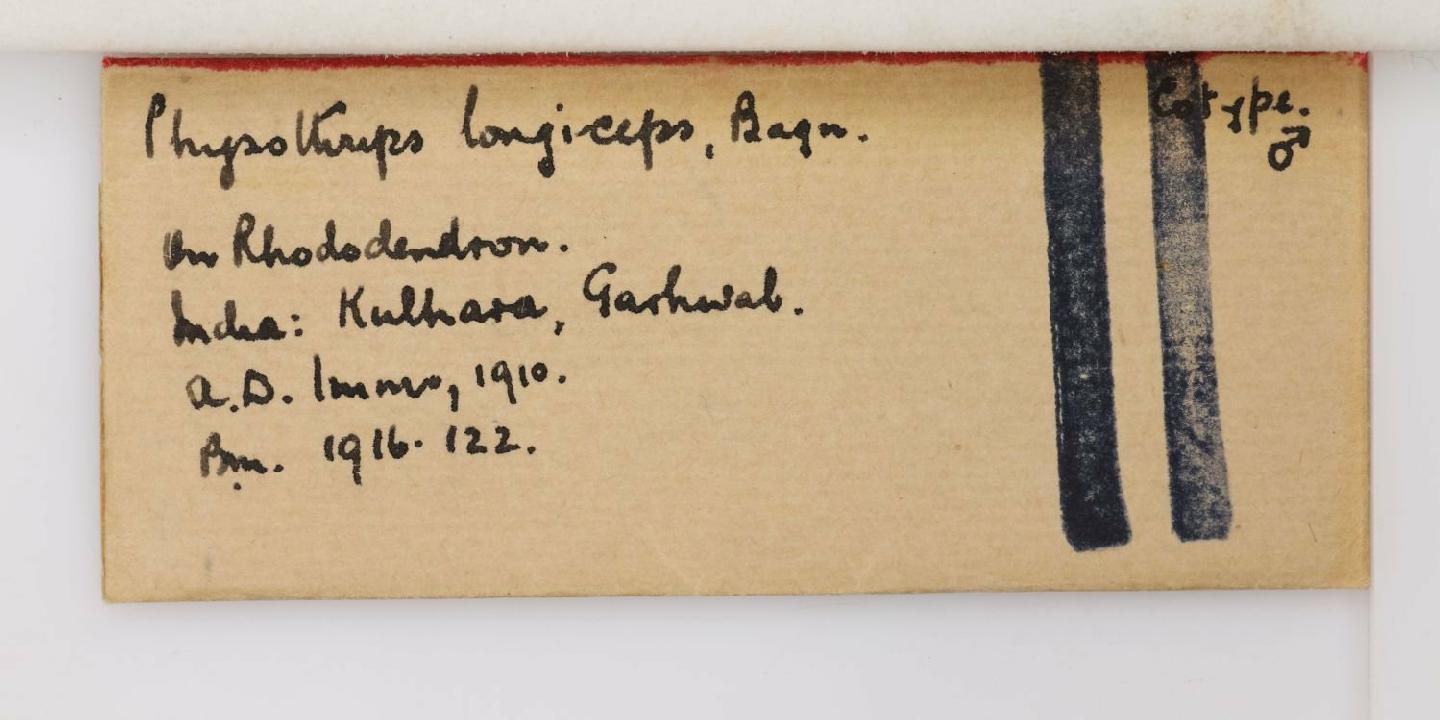 Physothrips longiceps, Bagn.
Cotype.
♂
On Rhododendron.
India: Kulhara, Garhwal.
A.D. Imms, 1910.
Bm. 1916-122.